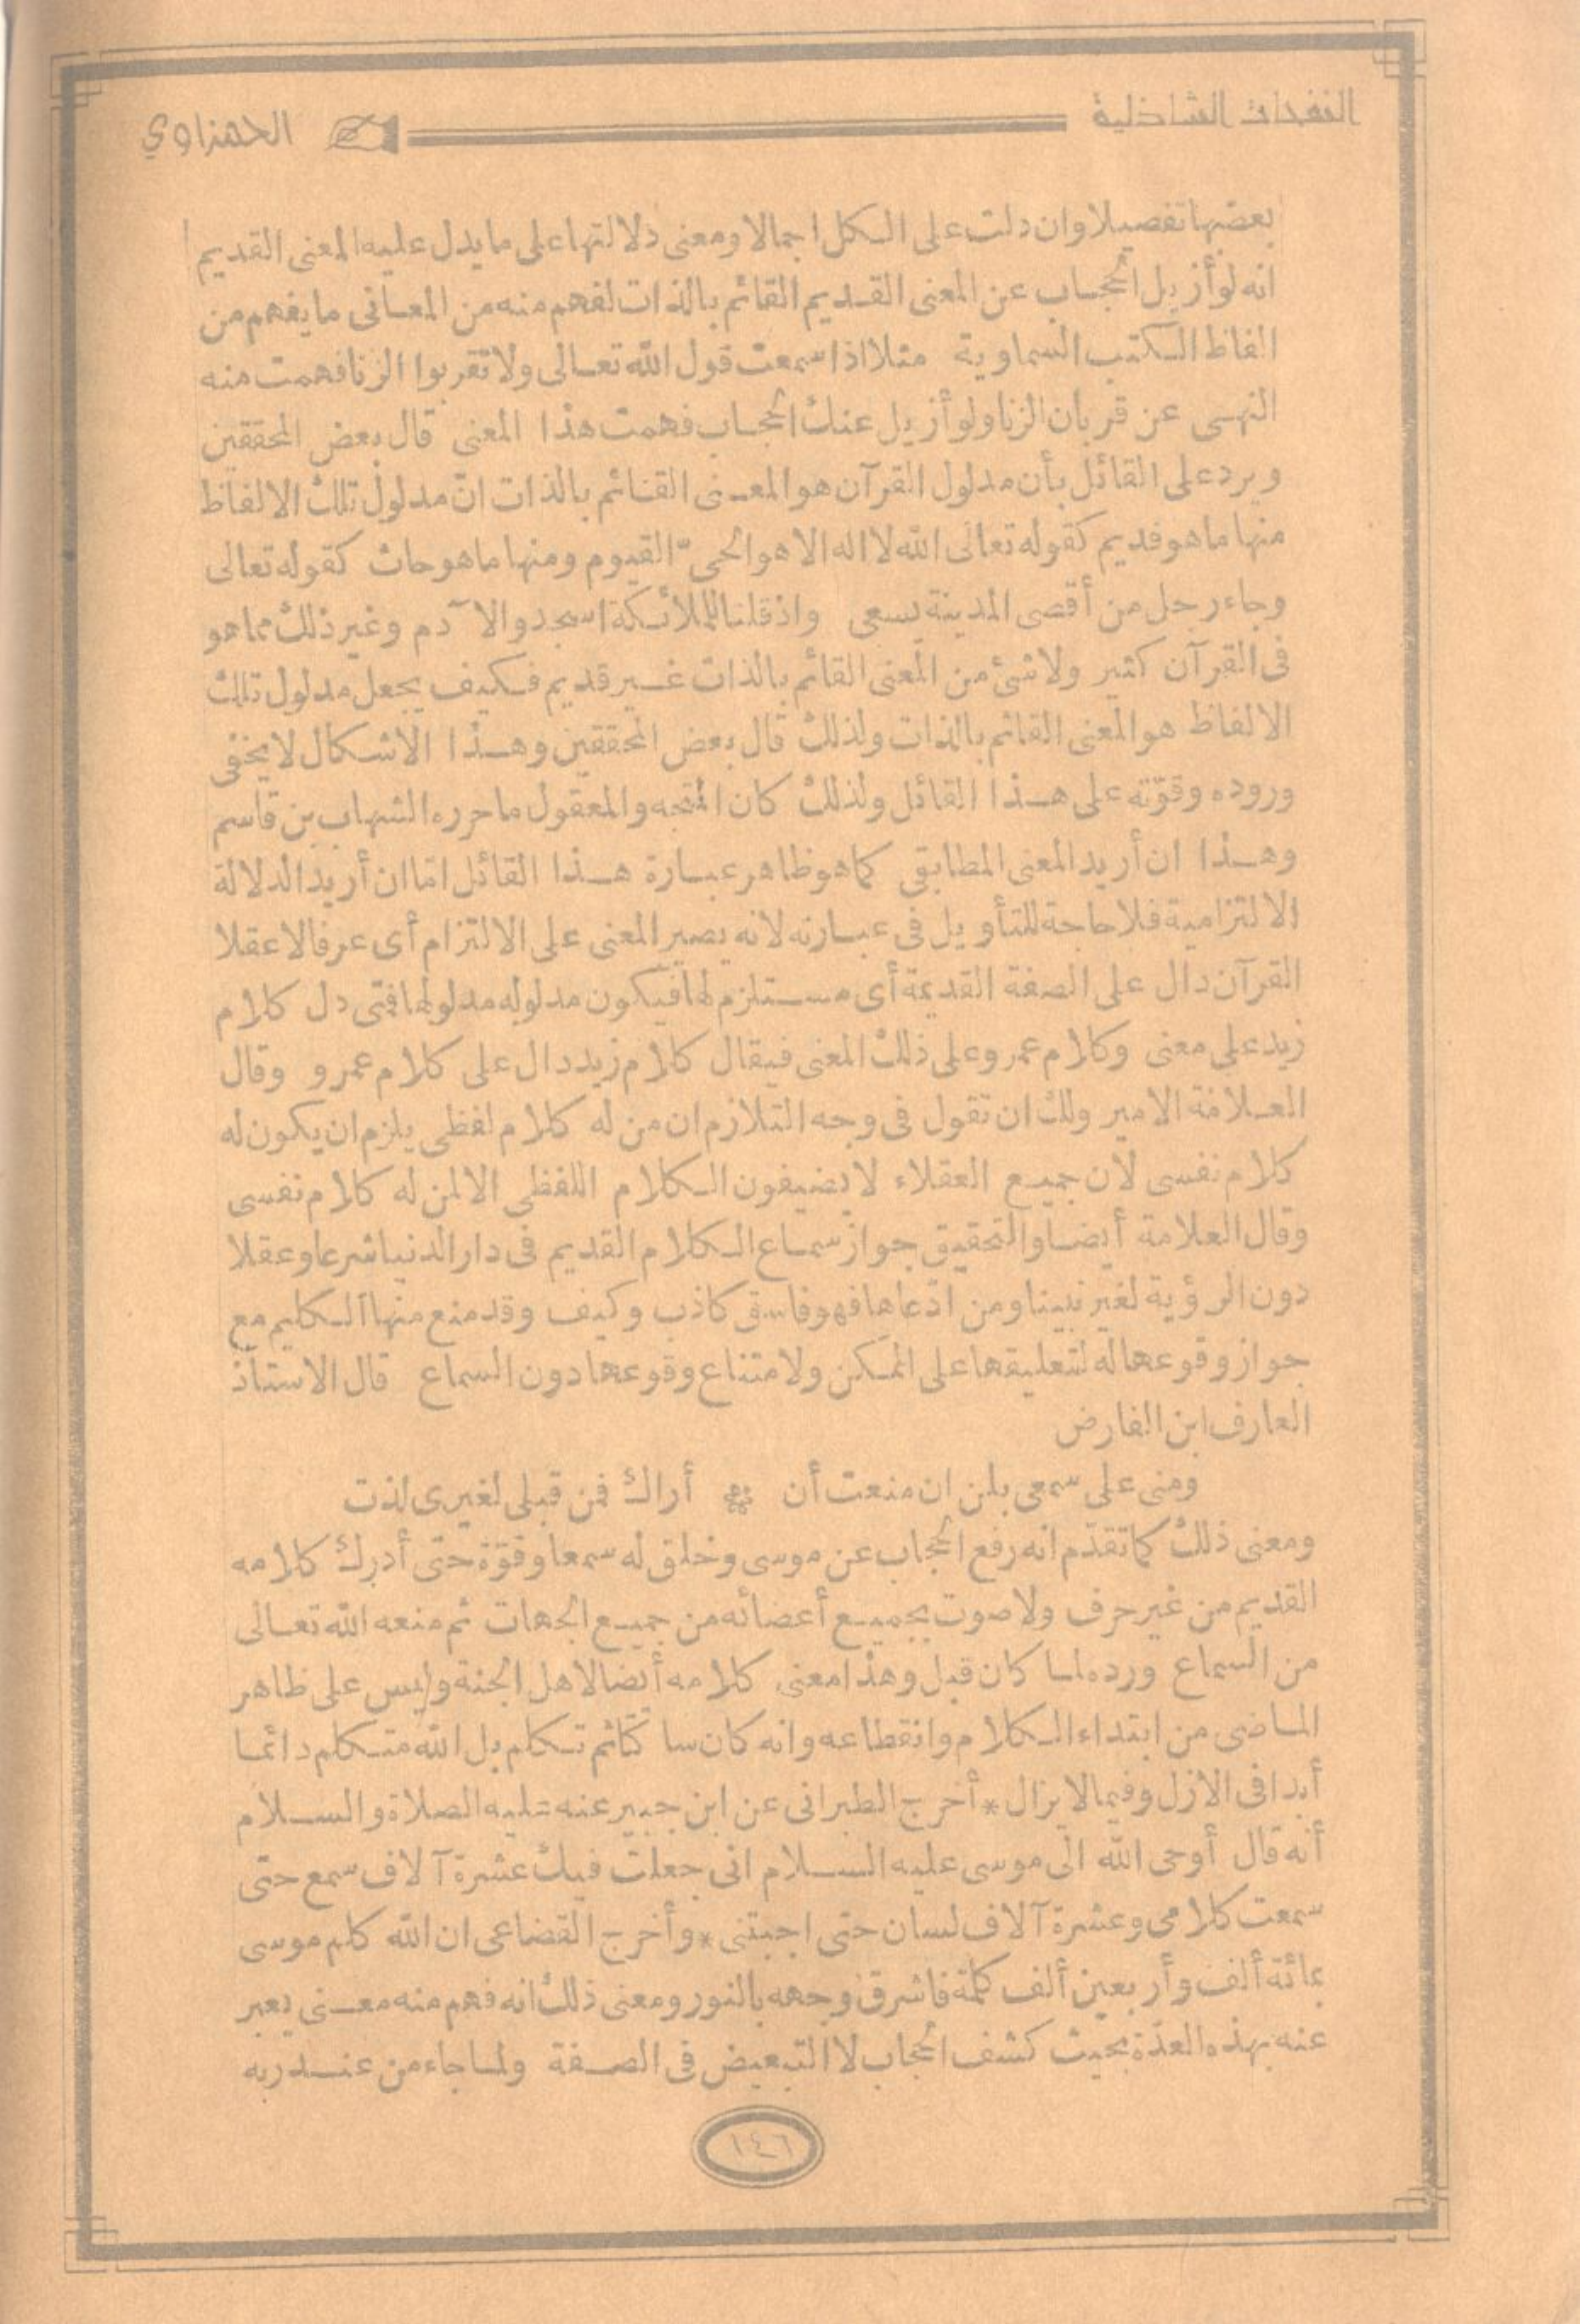 النفحات الشاذلية
الحمزاوي
بعضها تفصيلا وان دلت على الكل اجمالا ومعنى دلالتها على ما يدل عليه المعنى القديم
انه لو أزيل الحجاب عن المعنى القديم القائم بالذات لفهم منه من المعانى ما يفهم من
الفاظ الكتب السماوية مثلا اذا سمعت قول الله تعالى ولا تقربوا الزنا فهمت منه
النهى عن قربان الزنا ولو أزيل عنك الحجاب فهمت هذا المعنى قال بعض المحققين
ويرد على القائل بأن مدلول القرآن هو المعنى القائم بالذات انّ مدلول تلك الالفاظ
منها ما هو قديم كقوله تعالى الله لا اله الا هو الحىّ القيوم ومنها ما هو حاث كقوله تعالى
وجاء رجل من أقصى المدينة يسعى واذ قلنا للملائكة اسجدوا لا آدم وغير ذلك مما هو
فى القرآن كثير ولا شئ من المعنى القائم بالذات غير قديم فكيف يجعل مدلول تلك
الالفاظ هو المعنى القائم بالذات ولذلك قال بعض المحققين وهذا الاشكال لا يخفى
وروده وقوّته على هذا القائل ولذلك كان المتجه والمعقول ما حرره الشهاب بن قاسم
وهذا ان أريد المعنى المطابقى كما هو ظاهر عبارة هذا القائل امّا ان أريد الدلالة
الالتزامية فلا حاجة للتأويل فى عبارته لانه يصير المعنى على الالتزام أى عرفا لا عقلا
القرآن دال على الصفة القديمة أى مستلزم لها فيكون مدلوله مدلولها فمتى دل كلام
زيد على معنى وكلام عمرو على ذلك المعنى فيقال كلام زيد دال على كلام عمرو وقال
العلامة الامير ولك ان تقول فى وجه التلازم ان من له كلام لفظى يلزم ان يكون له
كلام نفسى لأن جميع العقلاء لا يضيفون الكلام اللفظى الا لمن له كلام نفسى
وقال العلامة أيضا والتحقيق جواز سماع الكلام القديم فى دار الدنيا شرعا وعقلا
دون الرؤية لغير نبينا ومن ادّعاها فهو فاسق كاذب وكيف وقد منع منها الكليم مع
جواز وقوعها له لتعليقها على الممكن ولامتناع وقوعها دون السماع قال الاستاذ
العارف ابن الفارض
ومنى على سمعى بلن ان منعت أن * أراك فمن قبلى لغيرى لذت
ومعنى ذلك كما تقدّم انه رفع الحجاب عن موسى وخلق له سمعا وقوّة حتى أدرك كلامه
القديم من غير حرف ولا صوت بجميع أعضائه من جميع الجهات ثم منعه الله تعالى
من السماع ورده لما كان قبل وهذا معنى كلامه أيضا لاهل الجنة وليس على ظاهر
الماضى من ابتداء الكلام وانقطاعه وانه كان ساكتا ثم تكلم بل الله متكلم دائما
أبدا فى الازل وفيما لا يزال * أخرج الطبرانى عن ابن جبير عنه عليه الصلاة والسلام
أنه قال أوحى الله الى موسى عليه السلام انى جعلت فيك عشرة آلاف سمع حتى
سمعت كلامى وعشرة آلاف لسان حتى اجبتنى * وأخرج القضاعى ان الله كلم موسى
بمائة ألف وأربعين ألف كلمة فاشرق وجهه بالنور ومعنى ذلك انه فهم منه معنى يعبر
عنه بهذه العدّة بحيث كشف الحجاب لا التبعيض فى الصفة ولما جاء من عند ربه
١٤٦